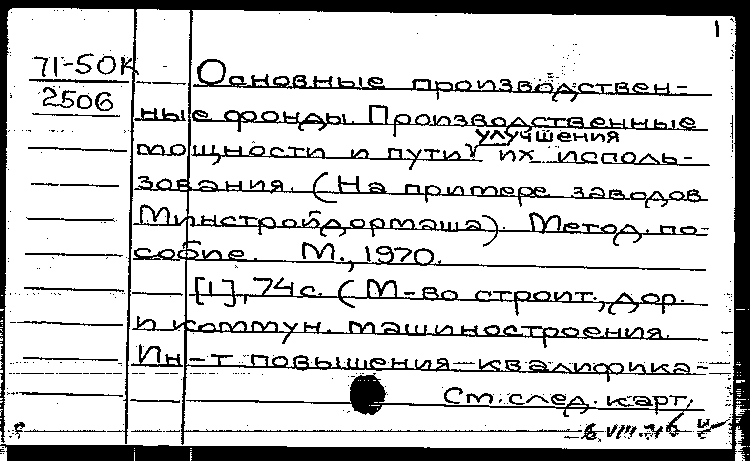 1
71-50К
2506
Основные производствен-
ные фонды. Производственные
мощности и пути улучшения их исполь-
зования. (На примере заводов
Минстройдормаша). Метод. по-
собие. М., 1970.
[1], 74 с. (М-во строит., дор.
и коммун. машиностроения.
Ин-т повышения квалифика-
См. след. карт.